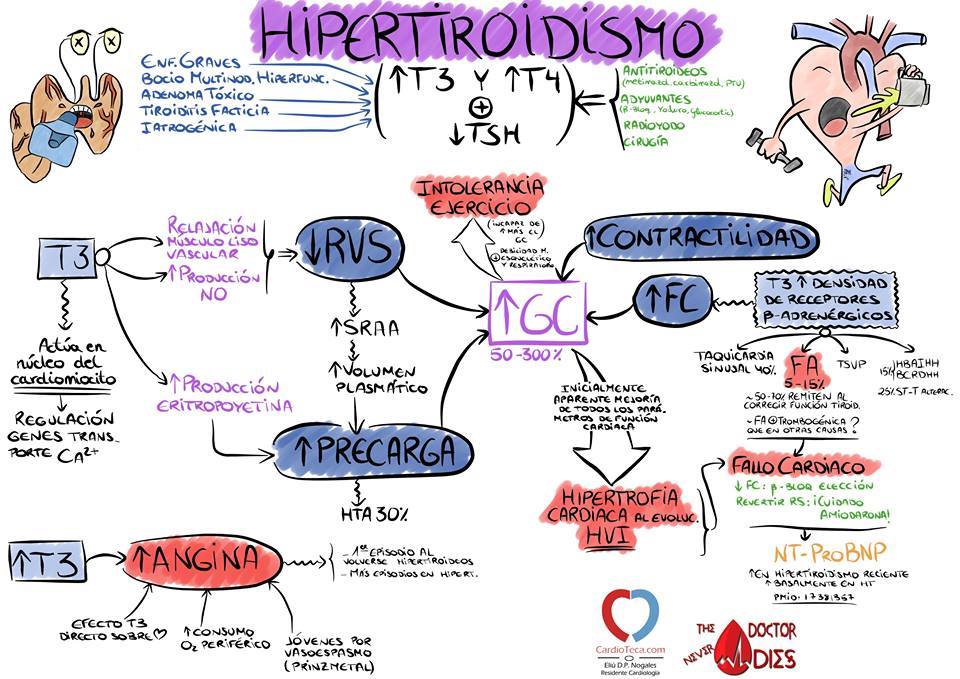 HIPERTIROIDISMO
ENF. GRAVES
BOCIO MULTINOD. HIPERFUNC.
ADENOMA TÓXICO
TIROIDITIS FACTICIA
IATROGÉNICA
↑T3 Y ↑T4
⊕
↓TSH
ANTITIROIDEOS
(metimazol, carbimazol, PTU)
ADYUVANTES
(β-Bloq, Yoduro, Glucocortic)
RADIOYODO
CIRUGÍA
T3
RELAJACIÓN
MÚSCULO LISO
VASCULAR
↑PRODUCCIÓN
NO
↓RVS
INTOLERANCIA
EJERCICIO
(INCAPAZ DE
↑ MÁS EL
GC
DEBILIDAD M.
⊕ESQUELÉTICO
Y RESPIRATORIO
↑CONTRACTILIDAD
↑GC
50-300%
↑FC
T3 ↑ DENSIDAD
DE RECEPTORES
β-ADRENÉRGICOS
ACTÚA EN
NÚCLEO DEL
CARDIOMIOCITO
REGULACIÓN
GENES TRANS-
PORTE Ca2+
↑PRODUCCIÓN
ERITROPOYETINA
↑SRAA
↑VOLUMEN
PLASMÁTICO
↑PRECARGA
HTA 30%
TAQUICARDIA
SINUSAL 40%
FA
5-15%
TSVP
15% HBAIHH
BCRDHH
25% ST-T ALTERAC.
~50-70% REMITEN AL
CORREGIR FUNCIÓN TIROID.
~FA⊕TROMBOGÉNICA
QUE EN OTRAS CAUSAS ?
INICIALMENTE
APARENTE MEJORÍA
DE TODOS LOS PARÁ-
METROS DE FUNCIÓN
CARDIACA
HIPERTROFIA
CARDIACA AL EVOLUC.
HVI
FALLO CARDIACO
↓ FC: β-BLOQ ELECCIÓN
REVERTIR RS: ¡CUIDADO
AMIODARONA!
NT-PROBNP
↑EN HIPERTIROIDISMO RECIENTE
↑ BASALMENTE EN HT
PMID: 17381367
↑T3
↑ANGINA
- 1er EPISODIO AL
VOLVERSE HIPERTIROIDEOS
- MÁS EPISODIOS EN HIPERT.
EFECTO T3
DIRECTO SOBRE ♡
↑CONSUMO
O2 PERIFÉRICO
JÓVENES POR
VASOESPASMO
(PRINZMETAL)
CardioTeca.com
Eliú D.P. Nogales
Residente Cardiología
THE DOCTOR
NEVER DIES